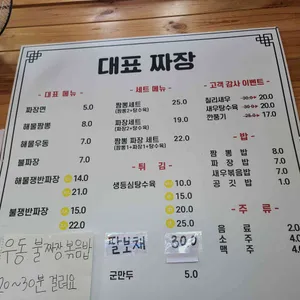 대표 짜장
대표 메뉴
짜장면 5.0
해물짬뽕 8.0
해물우동 7.0
불짜장 7.0
해물쟁반짜장 14.0
21.0
불쟁반짜장 15.0
22.0
세트 메뉴
짬뽕세트 25.0
(짬뽕2+탕수육)
짜장세트 19.0
(짜장2+탕수육)
짬뽕 짜장 세트 22.0
(짬뽕1+짜장1+탕수육)
튀 김
생등심탕수육 10.0
15.0
25.0
팔보채 30.0
군만두 5.0
고객 감사 이벤트
칠리새우 20.0
새우탕수육 20.0
깐풍기 17.0
밥
짬뽕밥 8.0
짜장밥 7.0
새우볶음밥 7.0
공깃밥 1.0
주 류
음료 2.0
소주 4.0
맥주 4.0
우동 불짜장 볶음밥
20~30분 걸려요